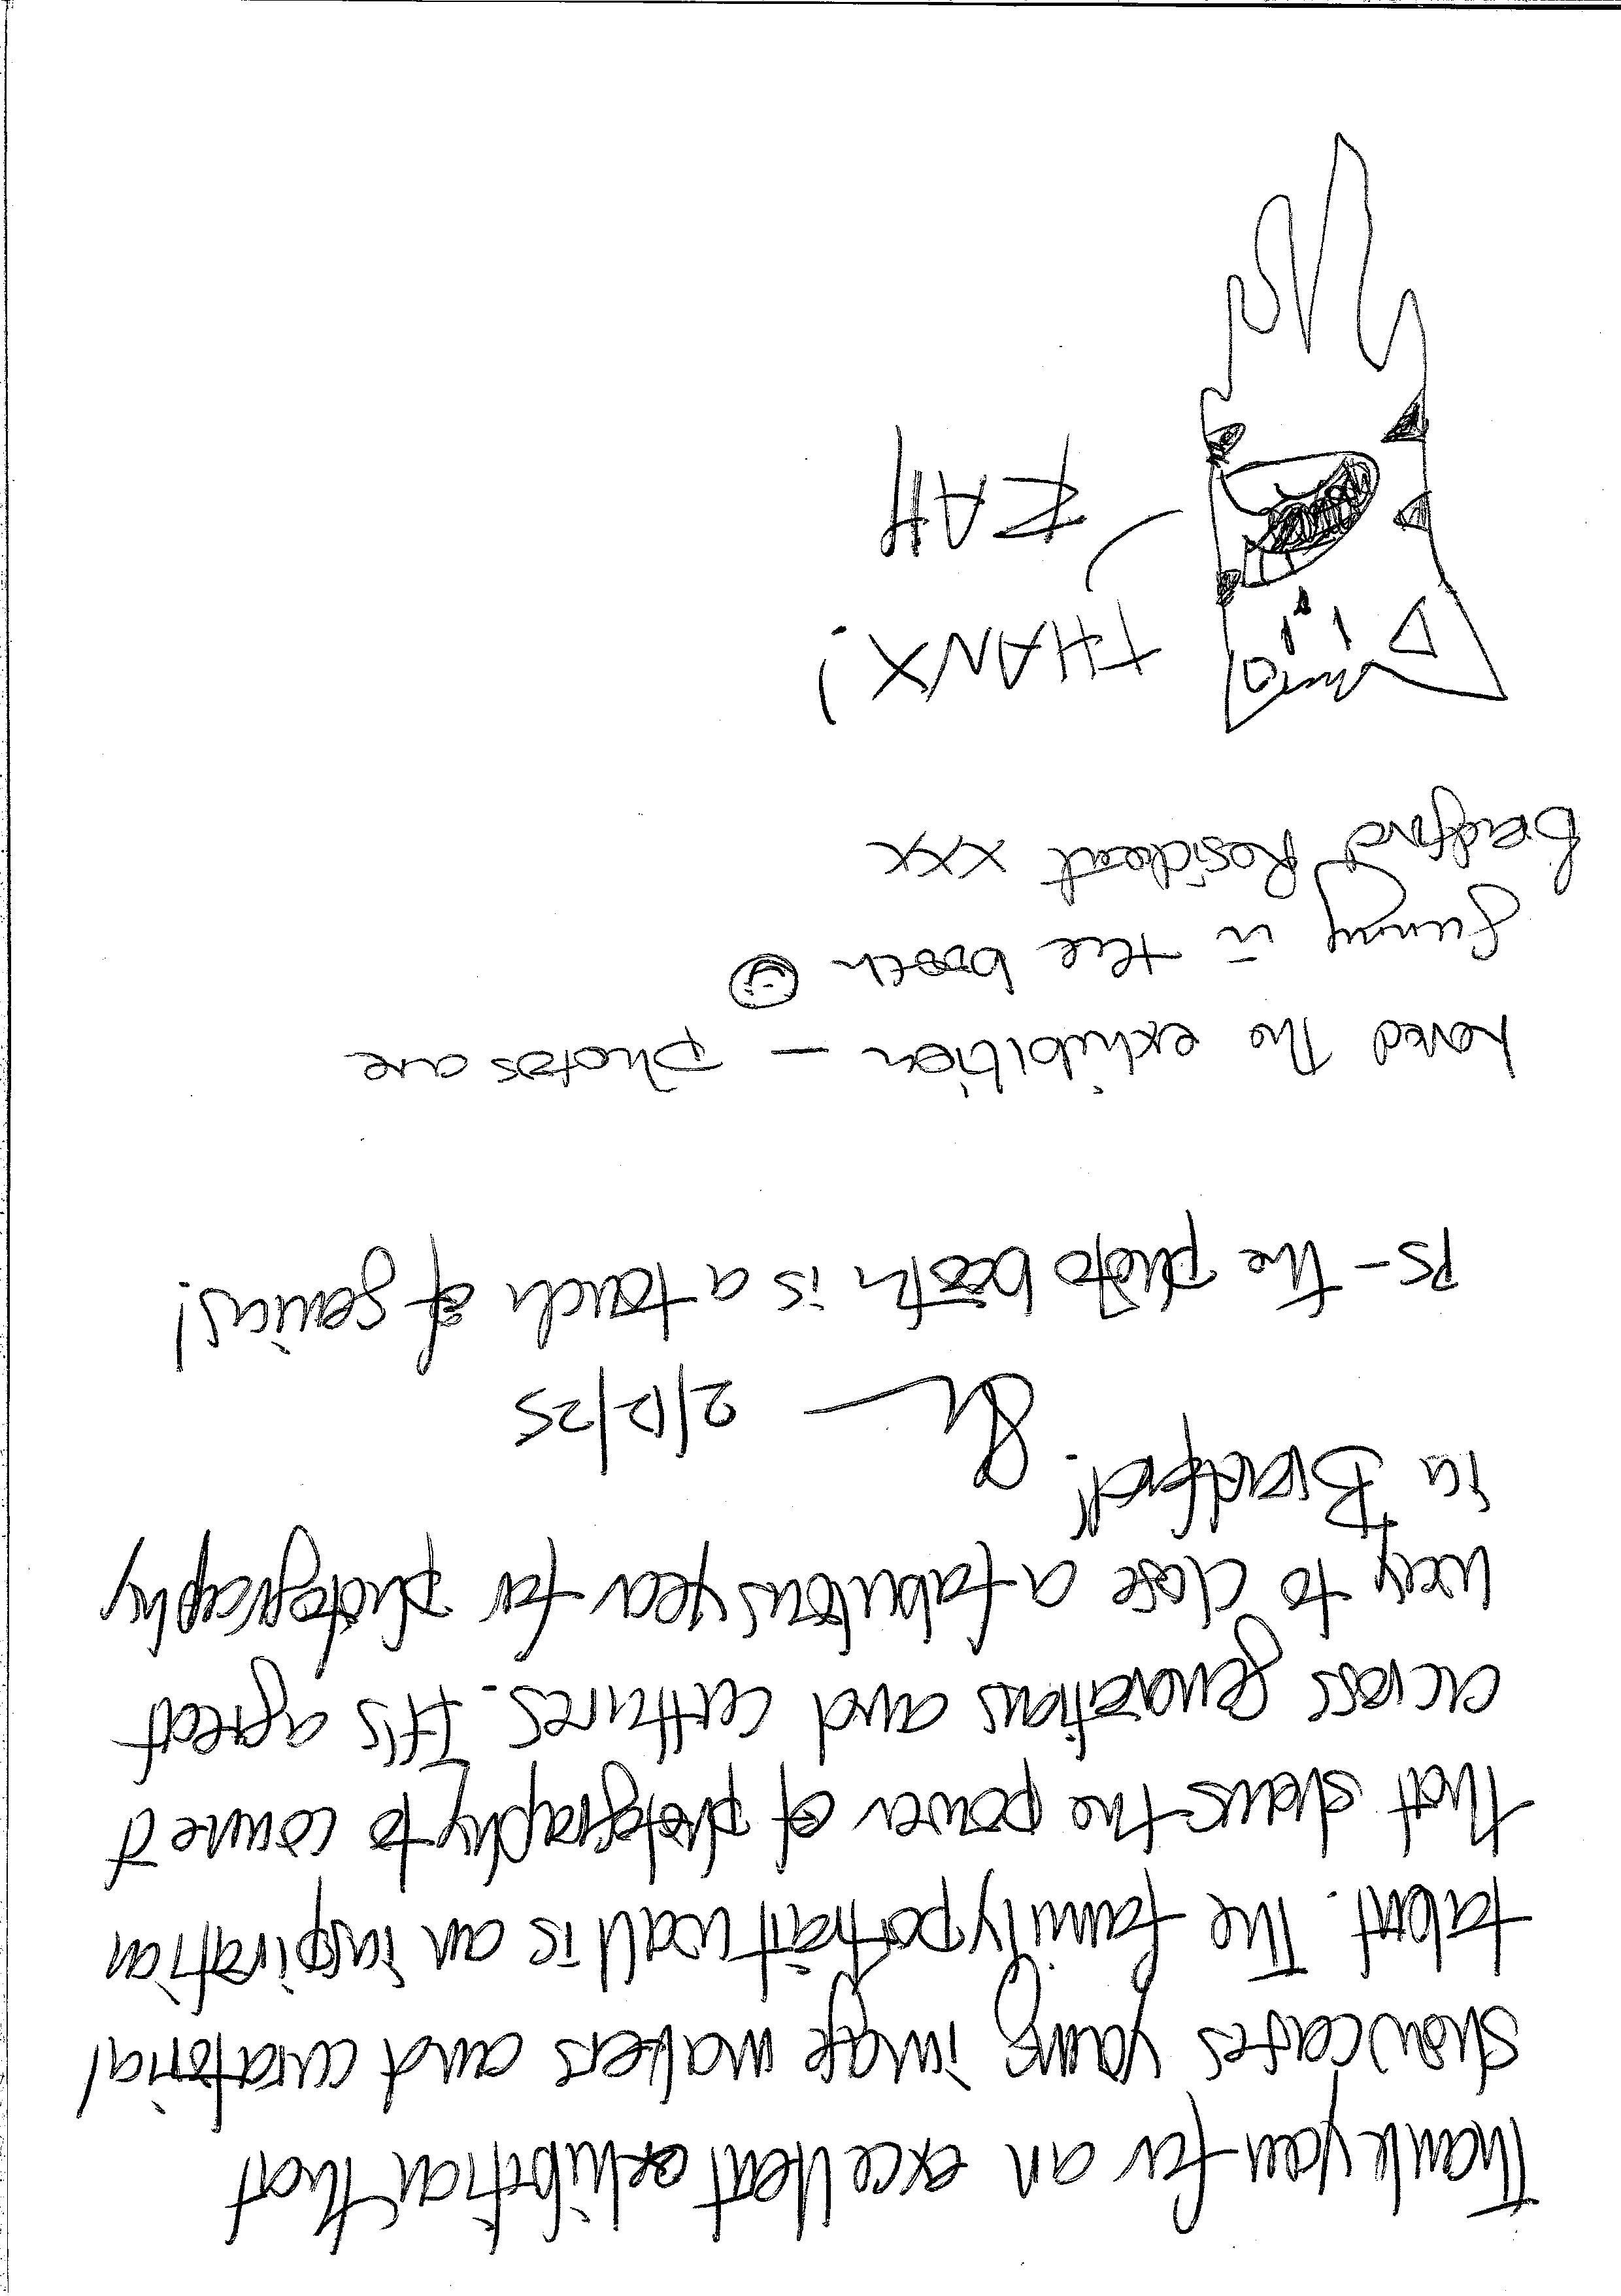 Thank you for an excellent exhibition that
showcases young image makers and curatorial
talent. The family portrait wall is an inspiration
that shows the power of photography to connect
across generations and cultures. It's a great
way to close a fabulous year for photography
in Bradford.
2/12/25
PS - the photo booth is a touch of genius!
Loved the exhibition - photos are
funny in the booth
Bradford Resident xxx
THANX!
RAH